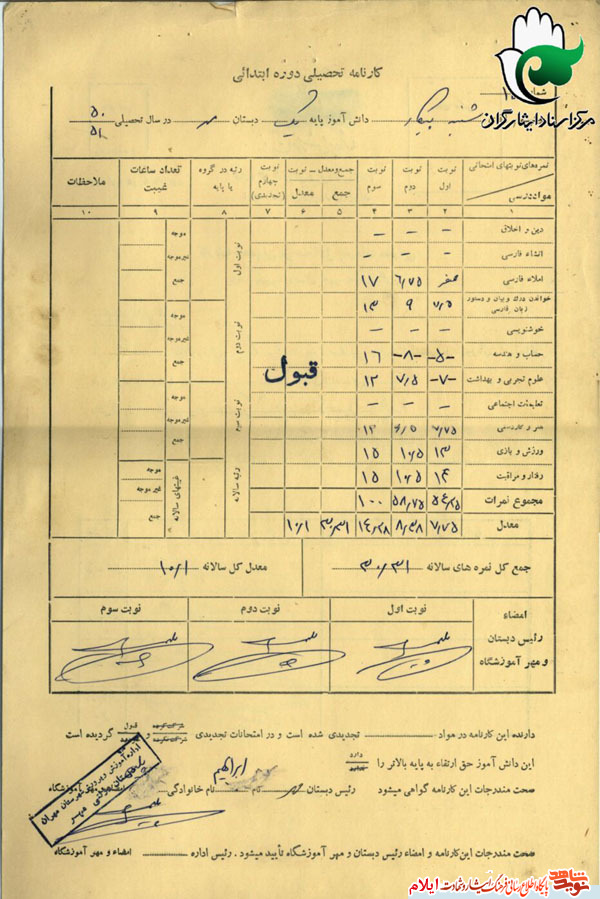 مرکز اسناد ایثارگران
کارنامه تحصیلی دوره ابتدائی
شماره
دانش آموز پایه یک دبستان مهر در سال تحصیلی ۵۰ ۵۱
نمره‌های نوبتهای امتحانی نوبت اول نوبت دوم نوبت سوم جمع‌ومعدل ـ نوبت نوبت چهارم (تجدیدی) رتبه در گروه یا پایه تعداد ساعات غیبت ملاحظات
مواد درسی جمع معدل
۱ ۲ ۳ ۴ ۵ ۶ ۷ ۸ ۹ ۱۰
دین و اخلاق – – –
انشاء فارسی – – –
املاء فارسی صفر ۶/۷۵ ۱۷
خواندن درک و بیان و دستور زبان فارسی ۷/۵ ۹ ۱۳
خوشنویسی – – –
حساب و هندسه -۵- -۸- ۱۶
علوم تجربی و بهداشت -۷- ۷/۵ ۱۲
تعلیمات اجتماعی – – –
هنر و کاردستی ۷/۷۵ ۶/۵ ۱۲
ورزش و بازی ۱۳ ۱۰/۵ ۱۵
رفتار و مراقبت ۱۴ ۱۰/۵ ۱۵
مجموع نمرات ۵۴/۲۵ ۵۸/۷۵ ۱۰۰
معدل ۷/۷۵ ۸/۳۸ ۱۴/۲۸ ۳۰/۳۱ ۱۰/۱
نوبت اول موجه غیرموجه جمع
نوبت دوم موجه غیرموجه جمع
نوبت سوم موجه غیرموجه جمع
رتبه سالانه غیبتهای سالانه موجه غیرموجه جمع
قبول
جمع کل نمره های سالانه ۳۰/۳۱ معدل کل سالانه ۱۰/۱
امضاء رئیس دبستان و مهر آموزشگاه نوبت اول نوبت دوم نوبت سوم
دارنده این کارنامه در مواد تجدیدی شده است و در امتحانات تجدیدی قبول گردیده است
این دانش آموز حق ارتقاء به پایه بالاتر را دارد
صحت مندرجات این کارنامه گواهی میشود رئیس دبستان مهر نام ابراهیم نام خانوادگی امضاء و مهر آموزشگاه
اداره آموزش و پرورش شهرستان مهران
صحت مندرجات این کارنامه و امضاء رئیس دبستان و مهر آموزشگاه تأیید میشود . رئیس اداره امضاء و مهر آموزشگاه
نوید شاهد پایگاه اطلاع رسانی فرهنگ ایثار و شهادت ایلام